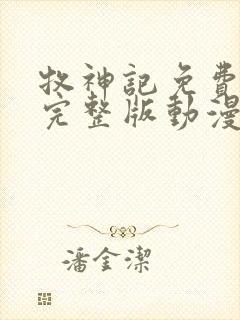 牧神記免費
完整版動漫
潘金潔